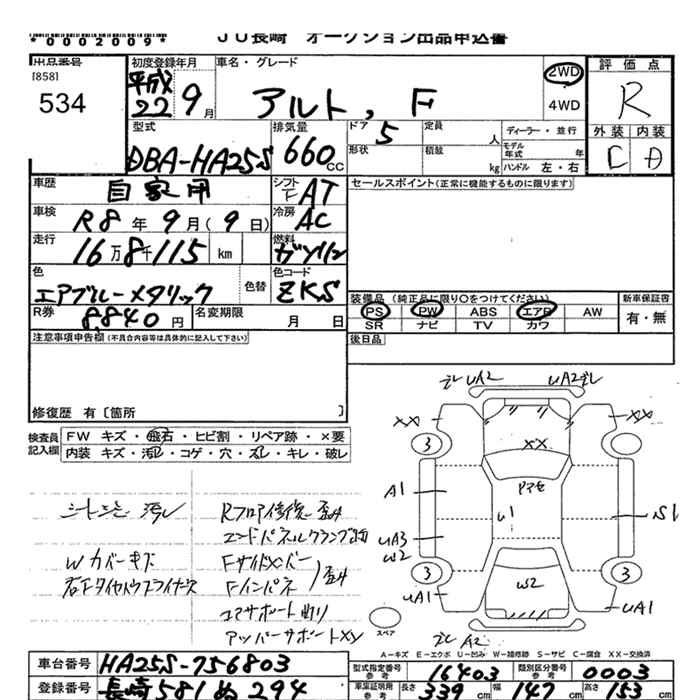 *0002009*
JU長崎 オークション出品申込書
出品番号
[858]
534
初度登録年月
平成22 9月
車名・グレード
アルト, F
2WD
4WD
評価点
R
外装 内装
C D
型式
DBA-HA25S
排気量
660cc
ドア 5
定員 人
形状
積載 kg
ディーラー・並行
モデル年式 年
ハンドル 左・右
車歴 自家用
シフト F AT
セールスポイント(正常に機能するものに限ります)
車検 R8年9月(9日)
冷房 AC
走行 16万8千115 km
燃料 ガソリン
色 エアブルーメタリック
色替
色コード ZKS
装備品(純正品に限り○をつけてください)
新車保証書
PS PW ABS エアB AW
有・無
SR ナビ TV カワ
R券 8,840円
名変期限 月 日
後日品
注意事項申告欄(不具合内容等は具体的に記入して下さい)
修復歴 有〔箇所 〕
検査員記入欄
FW キズ・飛石・ヒビ割・リペア跡・×要
内装 キズ・汚レ・コゲ・穴・スレ・キレ・破レ
汚レ
Rフロア修復 歪み
Wカバーキズ
Fサイドメンバー
Fインパネ
歪み
コアサポート曲り
アッパーサポートXV
UA2 UA2
XX XX
3
XX
A1
U1
S1
UA3
W2
3 3
W2
UA1 UA1
スペア
A2
A-キズ E-エクボ U-凹み W-補修跡 S-サビ C-腐食 XX-交換済
車台番号 HA25S-756803
型式指定番号 参考 16403
類別区分番号 参考 0003
登録番号 長崎581ぬ294
車庫証明用 参考 長さ339cm 幅147cm 高さ163cm